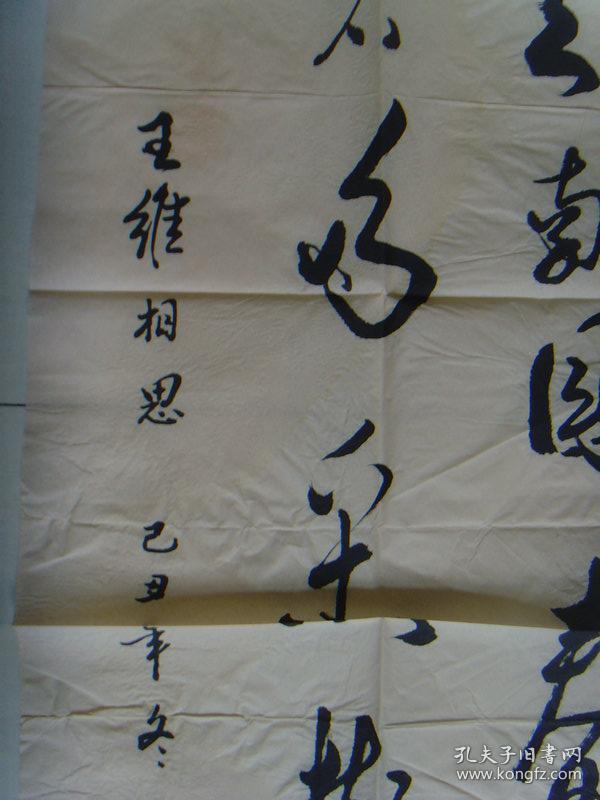 南國春
多采
王維相思 己丑年冬
孔夫子旧书网
www.kongfz.com